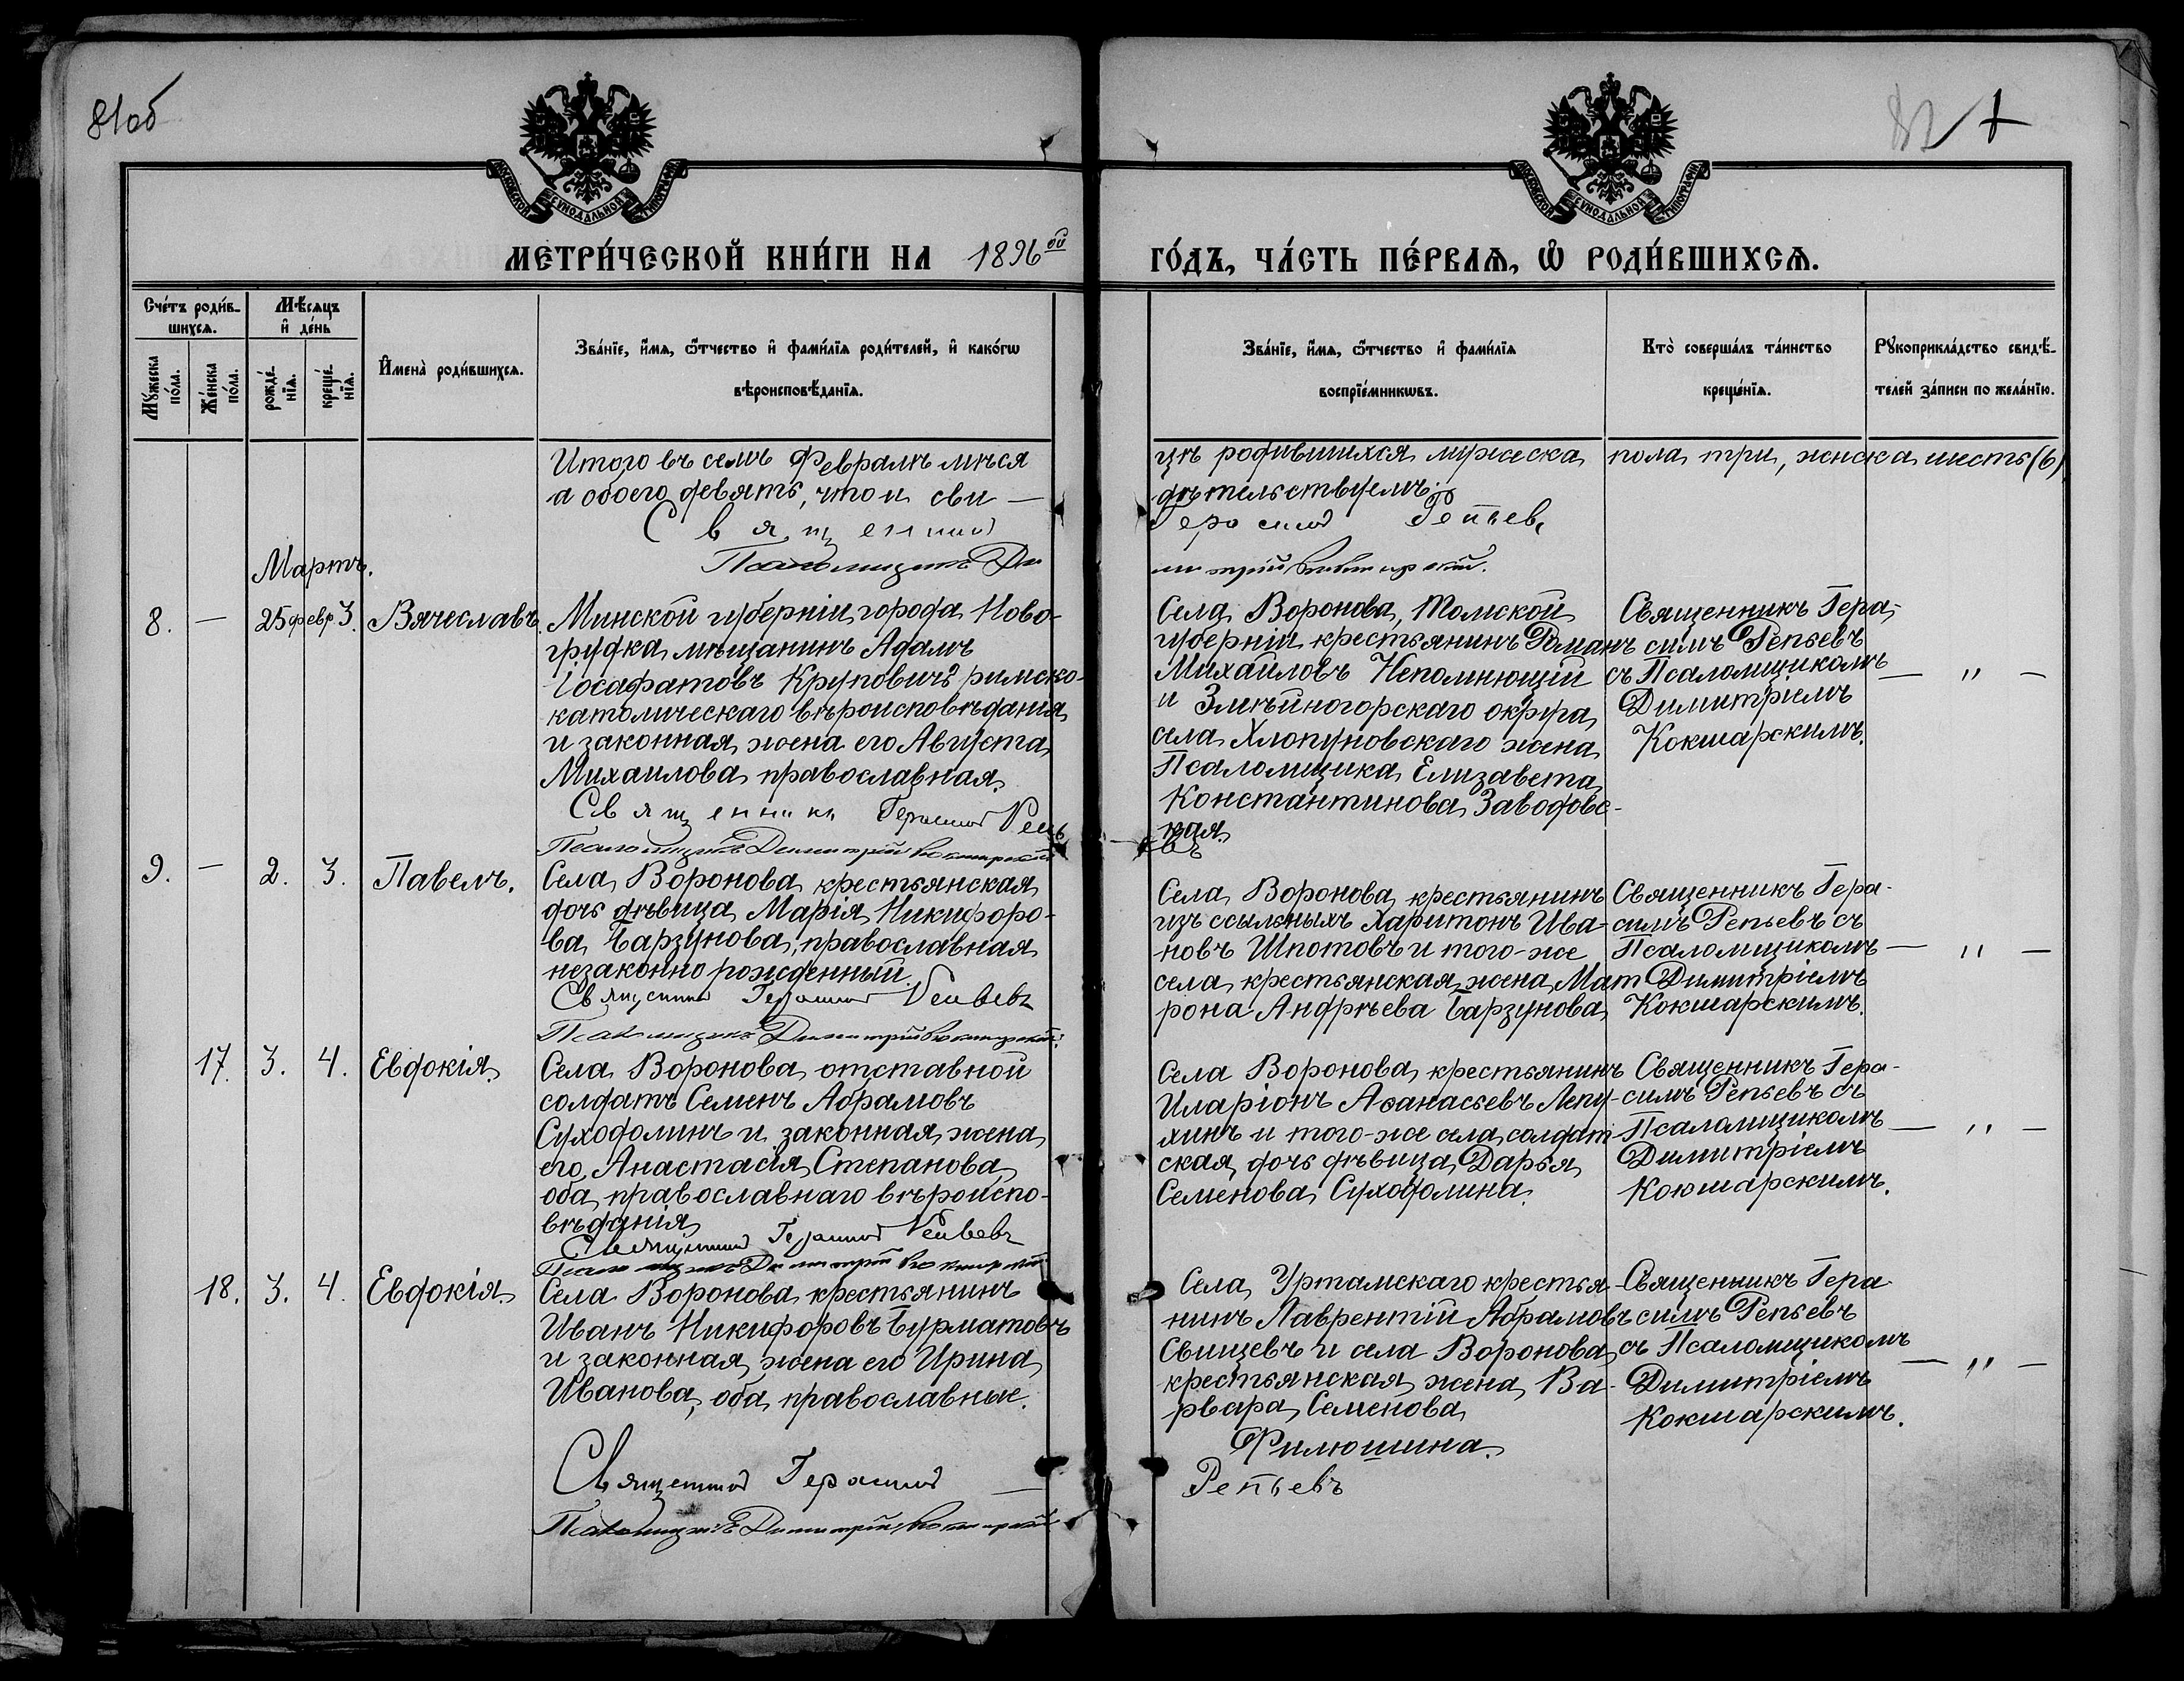 81об
82
МОСКОВСКОЙ СѴНОДАЛЬНОЙ ТИПОГРАФІИ
МОСКОВСКОЙ СѴНОДАЛЬНОЙ ТИПОГРАФІИ
МЕТРИ́ЧЕСКОЙ КНИ́ГИ НА 1896ой
ГО́ДЪ, ЧА́СТЬ ПЕ́РВАѦ, Ѡ РОДИ́ВШИХСѦ.
Сче́тъ роди́в-
шихсѧ.
Мꙋ́жеска по́ла.
Же́нска по́ла.
Мѣ́сѧцъ
и҆ де́нь
рожде́-
нїѧ.
креще́-
нїѧ.
И҆мена̀ роди́вшихсѧ.
Зва́нїе, и҆́мѧ, ѻ҆́тчество и҆ фамѝлїѧ роди́телей, и҆ како́гѡ
вѣроисповѣ́данїѧ.
Зва́нїе, и҆́мѧ, ѻ҆́тчество и҆ фами́лїѧ
воспрїе́мникѡвъ.
Кто̀ соверша́лъ та́инство
креще́нїѧ.
Рꙋкоприкла́дство свидѣ́-
телей за́писи по жела́нїю.
Итого въ семъ Февралѣ мѣся
цѣ родившихся мужеска пола три, женска шесть (6)
а обоего девять, что и сви —
дѣтельствуемъ:
Священникъ
Герасимъ Репьевъ
Псаломщикъ Ди
митрій Кокшарскій.
Мартъ.
8. — 25 февр 3. Вячеславъ.
Минской губерніи города Ново-
грудка мѣщанинъ Адамъ
Іосафатовъ Круповичъ римско-
католическаго вѣроисповѣданія
и законная жена его Августа
Михаилова православная.
Священникъ Герасимъ Репь
евъ
Псаломщикъ Димитрій Кокшарскій
Села Воронова, Томской
губерніи крестьянинъ Романъ
Михаиловъ Непомнющій
и Змѣйногорскаго округа
села Хлопуновскаго жена
Псаломщика Елизавета
Константинова Заводовс-
кая.
Священникъ Гера-
симъ Репьевъ
съ Псаломщикомъ
Димитріемъ
Кокшарскимъ.
— " —
9. — 2. 3. Павелъ.
Села Воронова крестьянская
дочь дѣвица Марія Никифоро-
ва Барзунова, православная
незаконно рожденный.
Священникъ Герасимъ Репьевъ
Псаломщикъ Димитрій Кокшарскій.
Села Воронова крестьянинъ
изъ ссыльныхъ Харитонъ Ива-
новъ Шпотовъ и того-же
села крестьянская жена Мат
рона Андрѣева Барзунова
Священникъ Гера-
симъ Репьевъ съ
Псаломщикомъ
Димитріемъ
Кокшарскимъ.
— " —
17. 3. 4. Евдокія.
Села Воронова отставной
солдатъ Семенъ Абрамовъ
Суходолинъ и законная жена
его Анастасія Степанова
оба православнаго вѣроиспо-
вѣданія
Священникъ Герасимъ Репьевъ
Псаломщикъ Димитрій Кокшарскій
Села Воронова крестьянинъ
Иларіонъ Аѳанасьевъ Лепу-
хинъ и того-же села солдат
ская дочь дѣвица Дарья
Семенова Суходолина.
Священникъ Гера-
симъ Репьевъ съ
Псаломщикомъ
Димитріемъ
Кокшарскимъ.
— " —
18. 3. 4. Евдокія.
Села Воронова крестьянинъ
Иванъ Никифоровъ Бурматовъ
и законная жена его Ирина
Иванова, оба православные.
Священникъ Герасимъ —
Репьевъ
Псаломщикъ Димитрій Кокшарскій
Села Уртамскаго крестья-
нинъ Лаврентій Абрамовъ
Свищевъ и села Воронова
крестьянская жена Ва-
рвара Семенова
Филюшина.
Священникъ Гера
симъ Репьевъ
съ Псаломщикомъ
Димитріемъ
Кокшарскимъ.
— " —